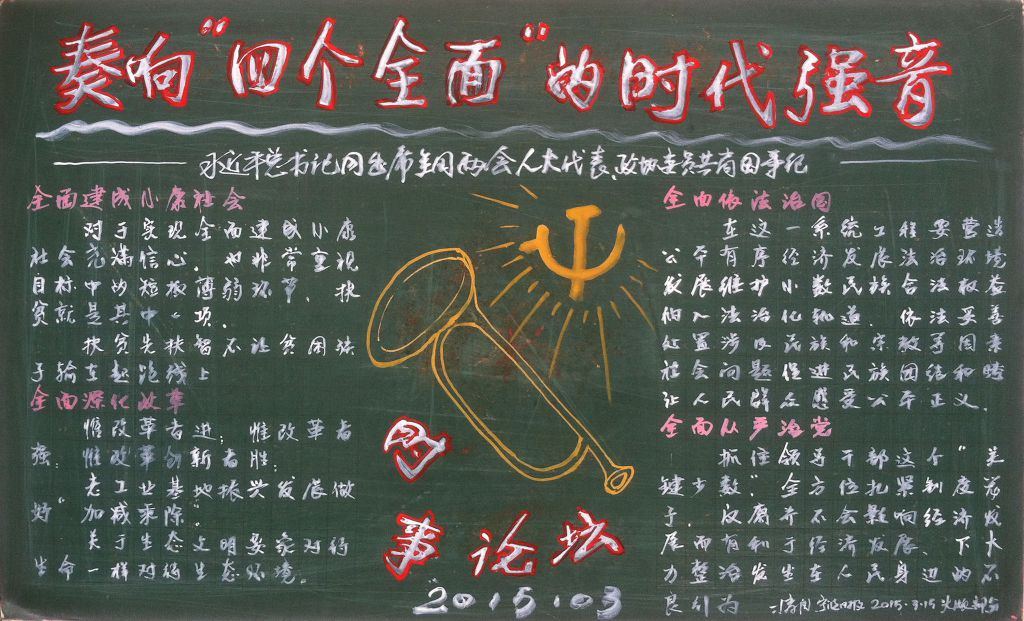 奏响“四个全面”的时代强音
习近平总书记同出席全国两会人大代表、政协委员共商国事纪
全面建成小康社会
对于实现全面建成小康
社会充满信心,也非常重视
目标中的短板薄弱环节,扶
贫就是其中一项.
扶贫先扶智不让贫困孩
子输在起跑线上
全面深化改革
惟改革者进;惟改革者
强;惟改革创新者胜;
老工业基地振兴发展做
好“加减乘除”
关于生态文明要象对待
生命一样对待生态环境。
全面依法治国
在这一系统工程要营造
公平有序经济发展法治环境
发展维护小数民族合法权益
纳入法治化轨道。依法妥善
处置涉及民族和宗教等因素
社会问题促进民族团结和睦
让人民群众感受公平正义.
全面从严治党
抓住领导干部这个“关
键少数”全方位扎紧制度笼
子.反腐并不会影响经济发
展而有利于经济发展、下大
力整治发生在人民身边的不
良行为
2015.3.15
时事论坛
2015.03